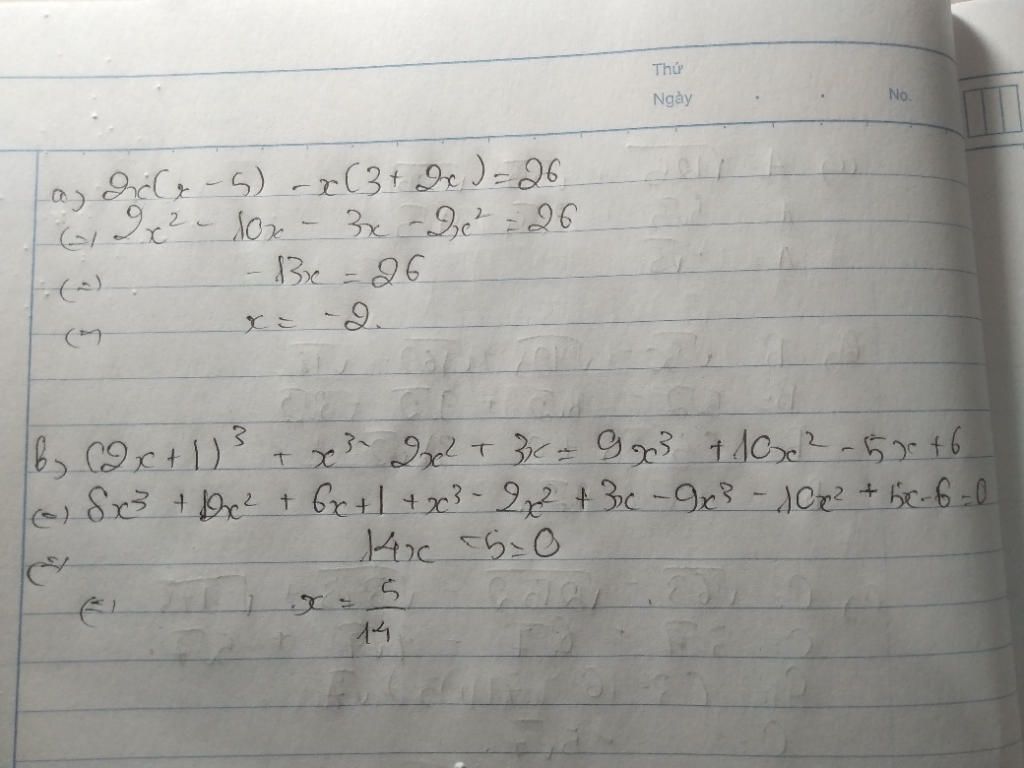 Thứ
Ngày . . No.
a) 2x(x - 5) - x(3 + 2x) = 26
(=) 2x² - 10x - 3x - 2x² = 26
(=) -13x = 26
(=) x = -2.
b) (2x + 1)³ + x³ - 2x² + 3x = 9x³ + 10x² - 5x + 6
(=) 8x³ + 12x² + 6x + 1 + x³ - 2x² + 3x - 9x³ - 10x² + 5x - 6 = 0
(=) 14x - 5 = 0
(=) x = 5/14